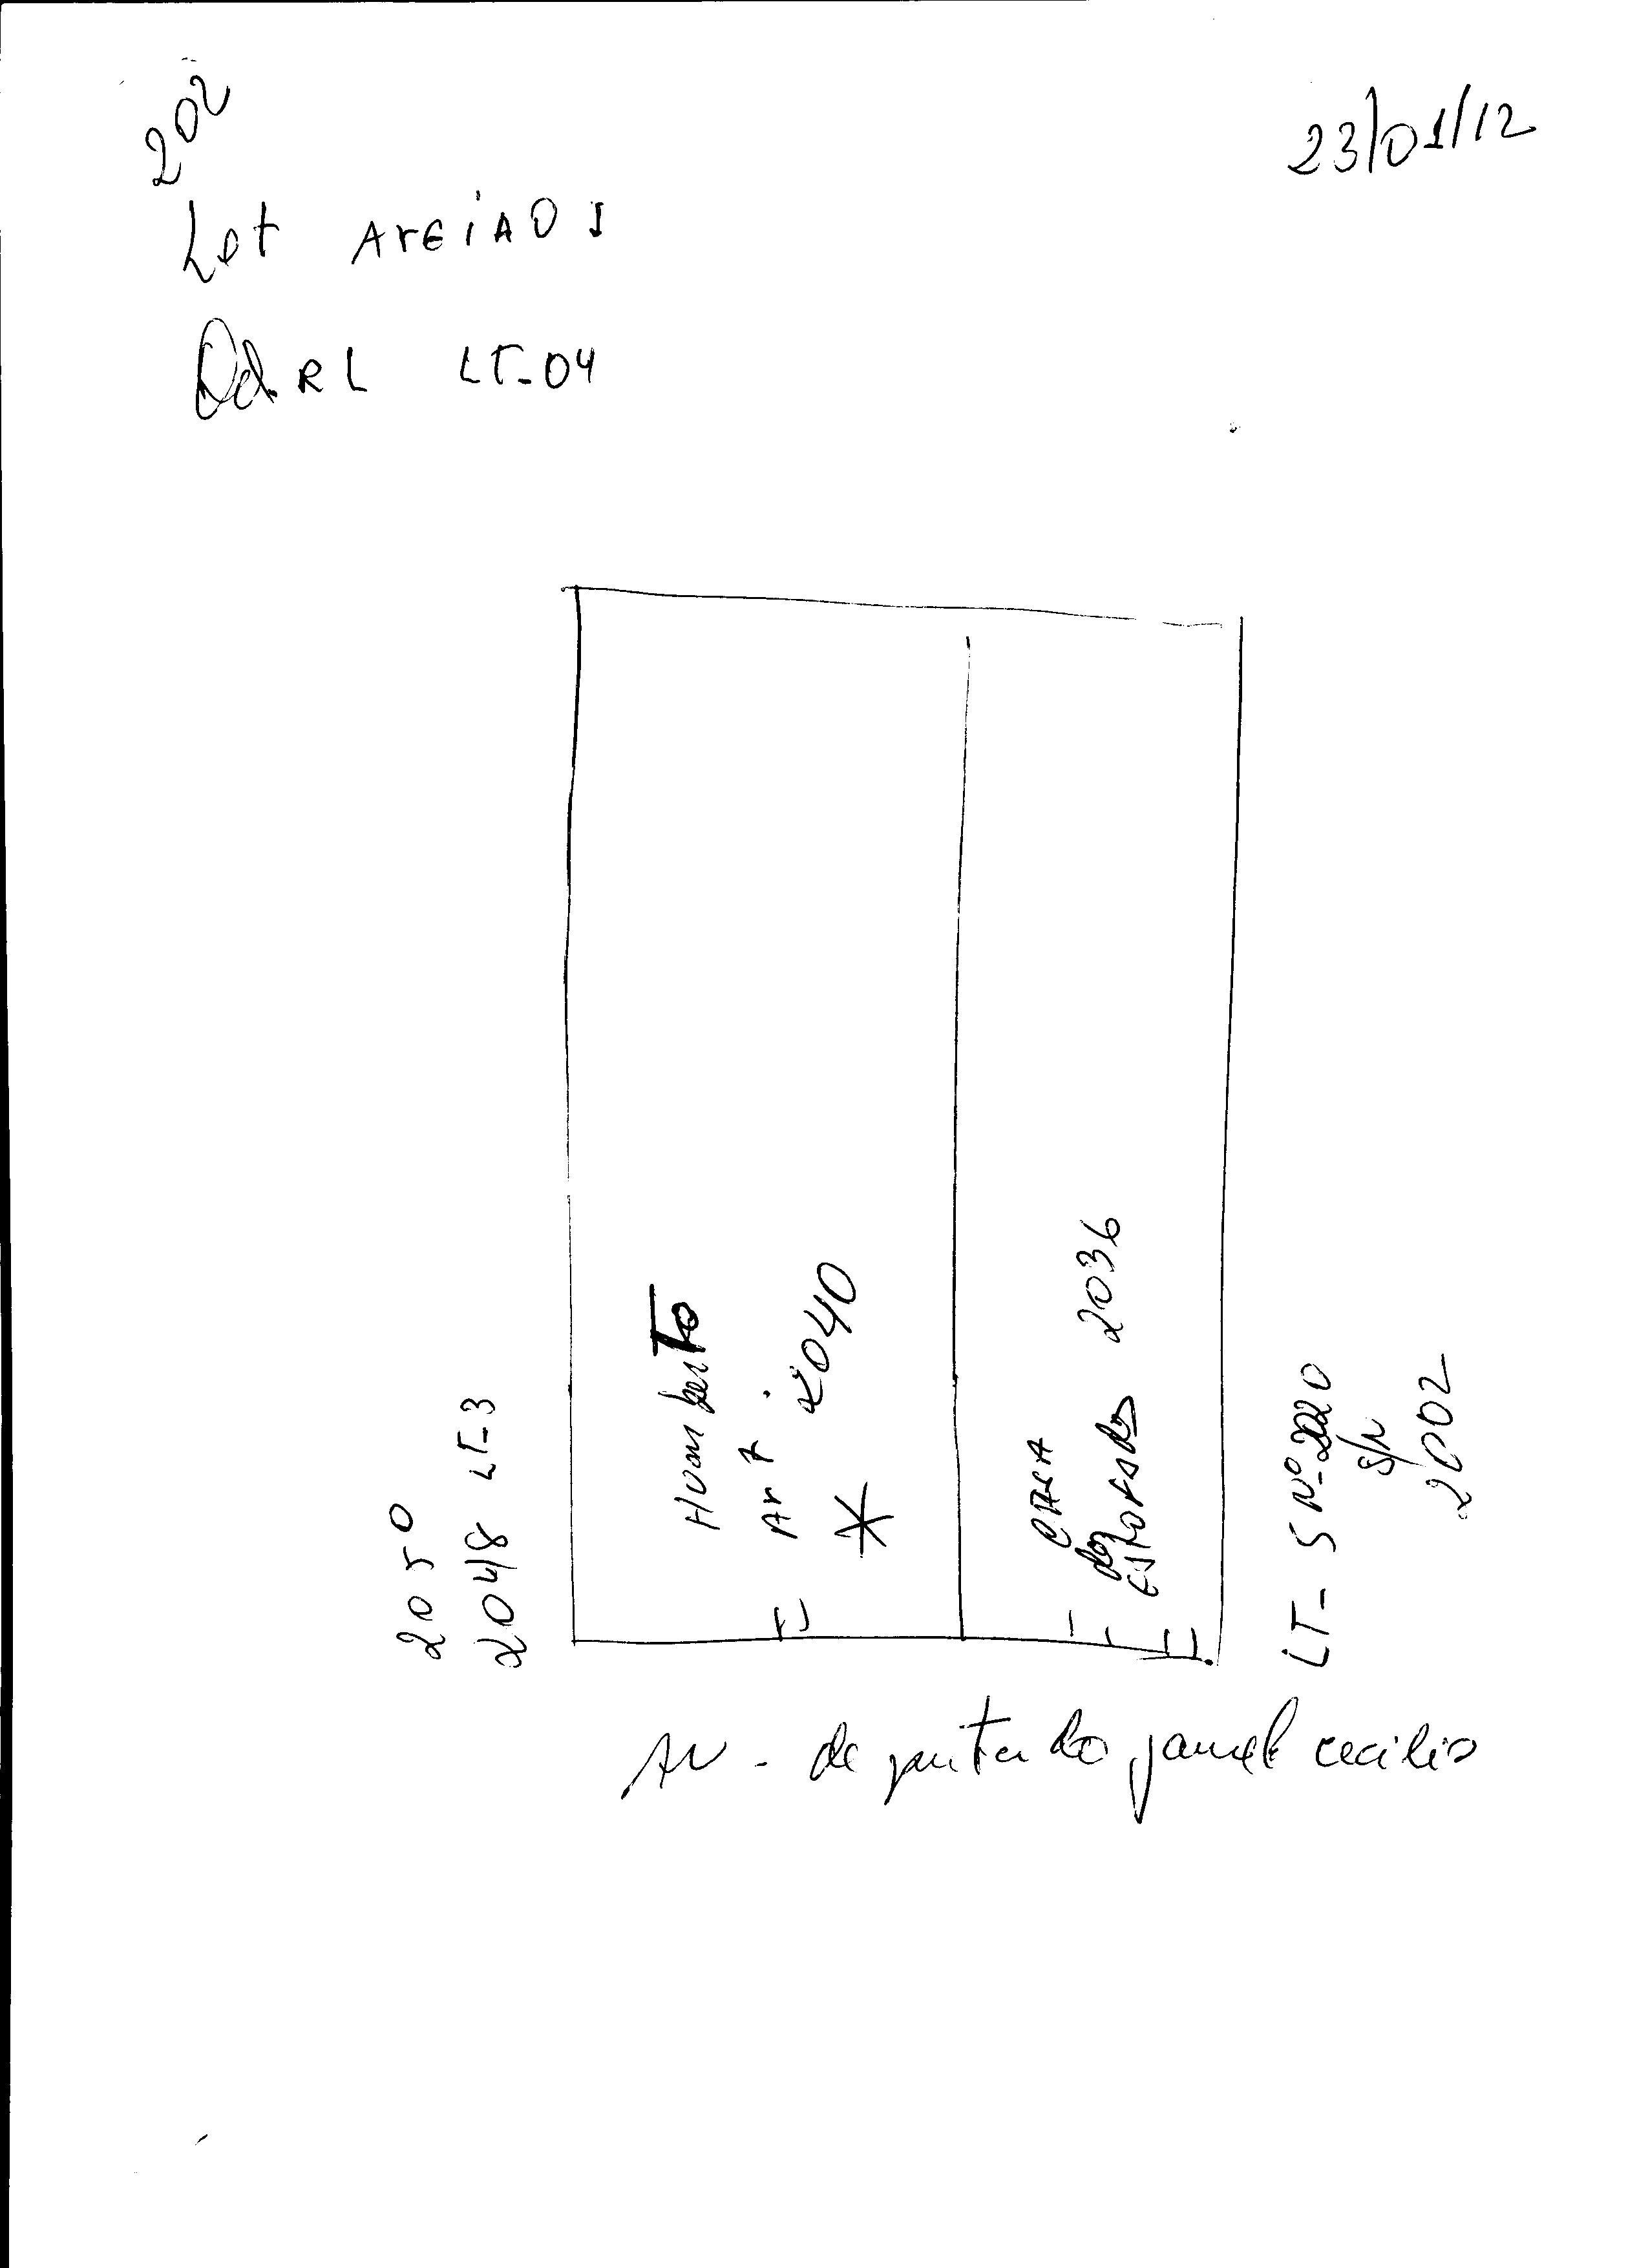 202
23/01/12
Lot AreiAO I
Qd. RL LT-04
2050
2048 LT-3
Humberto
Art 2040
*
CASA
dos
ESTOFADOS 2036
LT-5 Nº 2020
S/N
2002
AV. deputado jamel cecilio